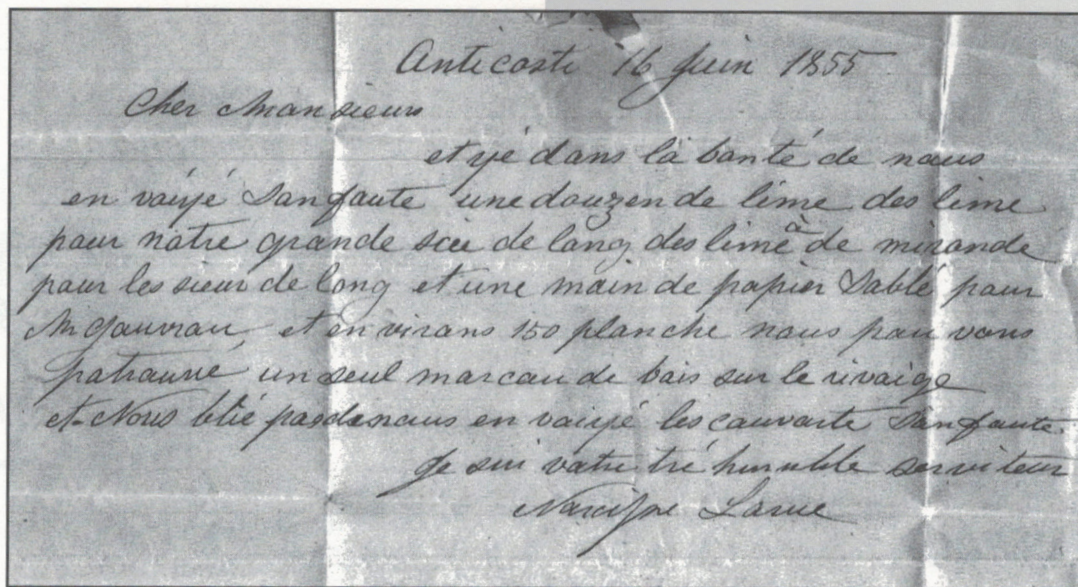 Anticosti 16 Juin 1855
Cher Mansieur
et yé dans la banté de naus
en vaiyé Sanfaute une douzen de lime des lime
pour natre grande scie de lang des lime à de mirande
paur les sieur de long et une main de papier Sablé paur
Mr Gauvrau et en virans 150 planche naus pau vans
patrauvé un seul marcau de bais sur le rivaige
et Nous blié pas de naus en vaiyé les cauvarte Sanfaute.
Je sui vatre tré humble serviteur
Narcisse Larue